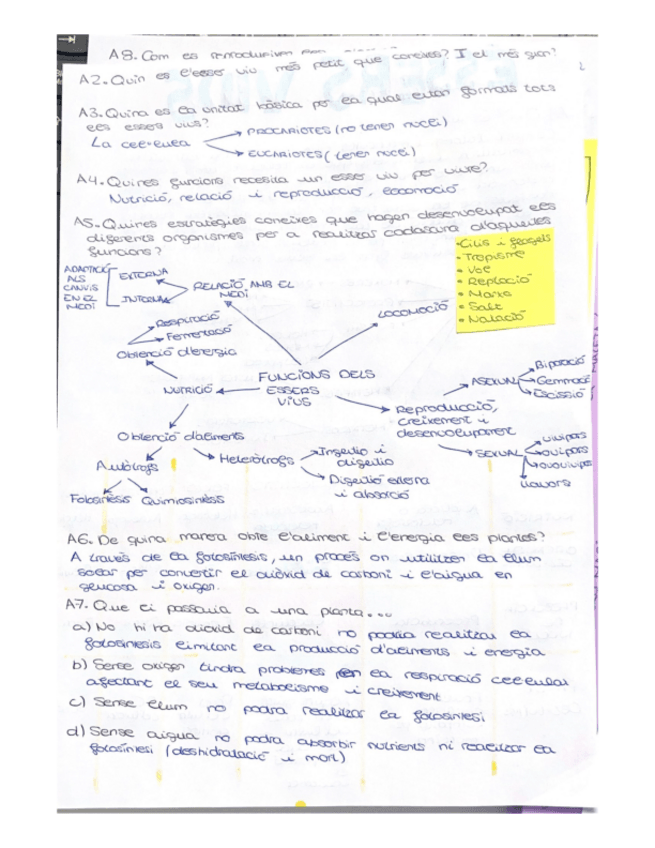 A8. Com es reprodueixen
A2. Quin es l'esser viu més petit que coneixes? I el més gran?
A3. Quina es la unitat bàsica per la qual estan formats tots
els essers vius?
La cel·lula
PROCARIOTES (no tenen nucli)
EUCARIOTES (tenen nucli)
A4. Quines funcions necesita un esser viu per viure?
Nutrició, relació i reproducció, locomoció
A5. Quines estratègies coneixes que hagen desenvolupat els
diferents organismes per a realitzar cadascuna d'aquestes
funcions?
• Cilis i flagels
• Tropisme
• Vol
• Reptació
• Marxa
• Salt
• Natació
ADAPTACIÓ
ALS
CANVIS
EN EL
MEDI
EXTERNA
INTERNA
RELACIÓ AMB EL
MEDI
LOCOMOCIÓ
Respiració
Fermentació
Obtenció d'energia
NUTRICIÓ
FUNCIONS DELS
ESSERS
VIUS
Reproducció,
creixement i
desenvolupament
ASEXUAL
Bipartició
Gemmació
Escissió
SEXUAL
Vivípars
Ovípars
Ovovivípars
Obtenció d'aliments
Autòtrofs
Fotosíntesis
Quimiosíntesis
Heteròtrofs
Ingestió i
digestió
Digestió externa
i absorció
A6. De quina manera obté l'aliment i l'energia les plantes?
A través de la fotosíntesis, un procés on utilitzen la llum
solar per convertir el diòxid de carboni i l'aigua en
glucosa i oxigen.
A7. Que li passaria a una planta...
a) No hi ha diòxid de carboni no podria realitzar la
fotosíntesis limitant la producció d'aliments i energia
b) Sense oxigen tindra problemes en la respiració cel·lular
afectant el seu metabolisme i creixement
c) Sense llum no podra realitzar la fotosíntesi
d) Sense aigua no podra absorbir nutrients ni realitzar la
fotosíntesi (deshidratació i mort)